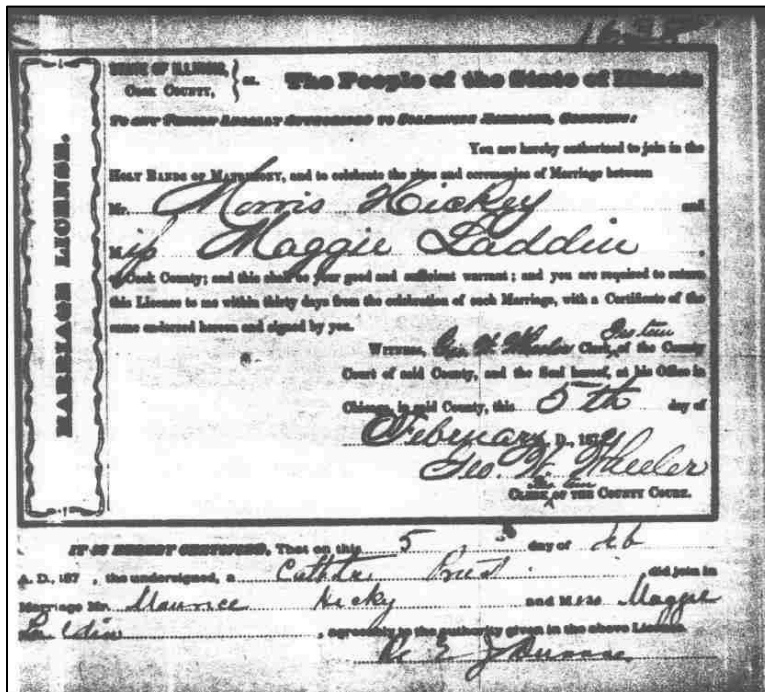 MARRIAGE LICENSE.
STATE OF ILLINOIS,
COOK COUNTY, ss. The People of the State of Illinois
TO ANY PERSON LEGALLY AUTHORIZED TO SOLEMNIZE MARRIAGE, GREETING:
You are hereby authorized to join in the
HOLY BANDS OF MATRIMONY, and to celebrate the rites and ceremonies of Marriage between
Mr. Morris Hickey and
Miss Maggie Laddin,
of Cook County; and this shall be your good and sufficient warrant; and you are required to return
this License to me within thirty days from the celebration of such Marriage, with a Certificate of the
same endorsed hereon and signed by you.
WITNESS, Geo. W. Wheeler Clerk Pro tem of the County
Court of said County, and the Seal hereof, at his Office in
Chicago, in said County, this 5th day of
February A. D., 187
Geo. W. Wheeler
Pro tem
CLERK OF THE COUNTY COURT.
IT IS HEREBY CERTIFIED, That on this 5 day of Feb
A. D., 187 , the undersigned, a Priest did join in
Marriage Mr. Maurice Hicky and Miss Maggie
, agreeably to the authority given in the above License.